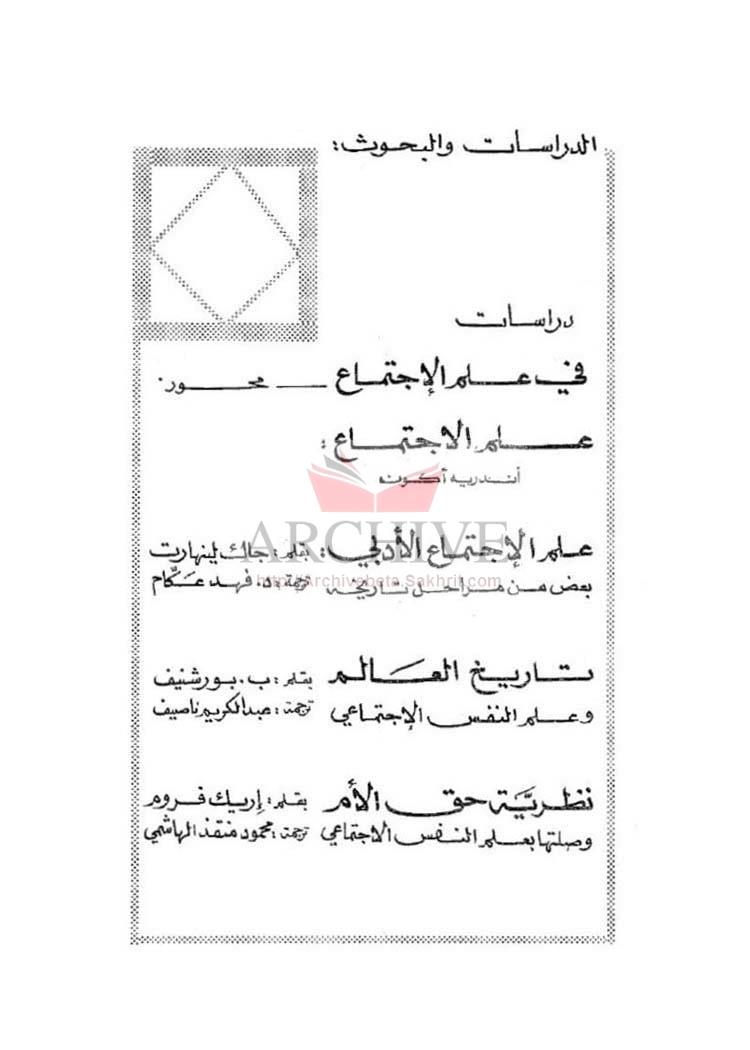 الدراسات والبحوث:
دراسات
في علم الإجتماع — محور.
علم الاجتماع:
أندريه أكونه
ARCHIVE
علم الإجتماع الأدبي: بقلم: جاك لينهارت
http://Archivebeta.Sakhrit.com
بعض من مراحل تاريخه ترجمة: د. فهد عكّام
تاريخ العالم بقلم: ب. بورشنيف
وعلم النفس الإجتماعي ترجمة: عبدالكريم ناصيف
نظريّة حق الأم بقلم: إريك فروم
وصلتها بعلم النفس الاجتماعي ترجمة: محمود منقذ الهاشمي